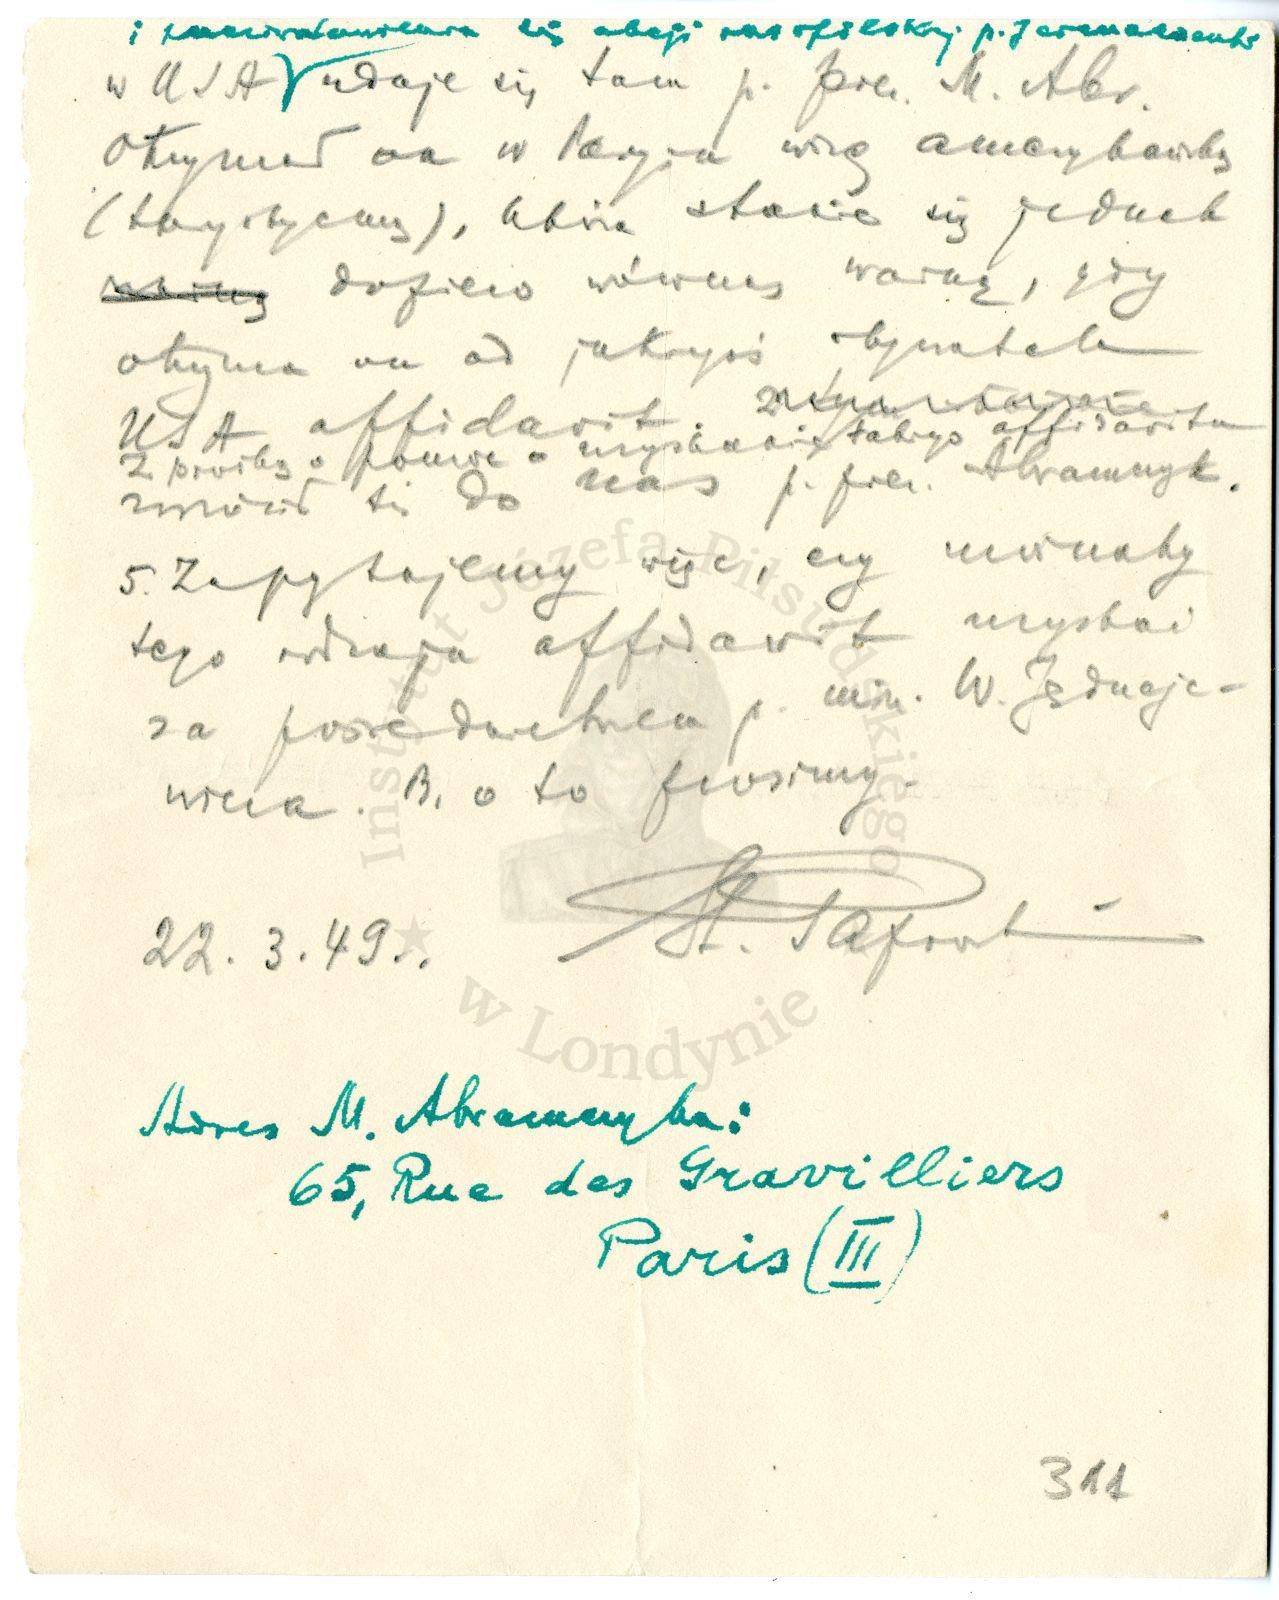 i przeciwstawienia się akcji rusofilskiej p. Jermaczenki
w USA udaje się tam p. prez. M. Abr.
Otrzymał on w Paryżu wizę amerykańską
(turystyczną), która stanie się jednak
ważną dopiero wówczas ważną, gdy
otrzyma on od jakiegoś obywatela
USA affidavit.
Z prośbą o pomoc o uzyskanie takiego affidavitu
zwrócił się do nas p. prez. Abramczyk.
5. Zapytujemy więc, czy można by
tego rodzaju affidavit uzyskać
za pośrednictwem p. min. W. Jędrzeje-
wicza. B. o to prosimy.
22.3.49.
St. Paprocki
Adres M. Abramczyka:
65, Rue des Gravilliers
Paris (III)
311
Instytut Józefa Piłsudskiego
w Londynie